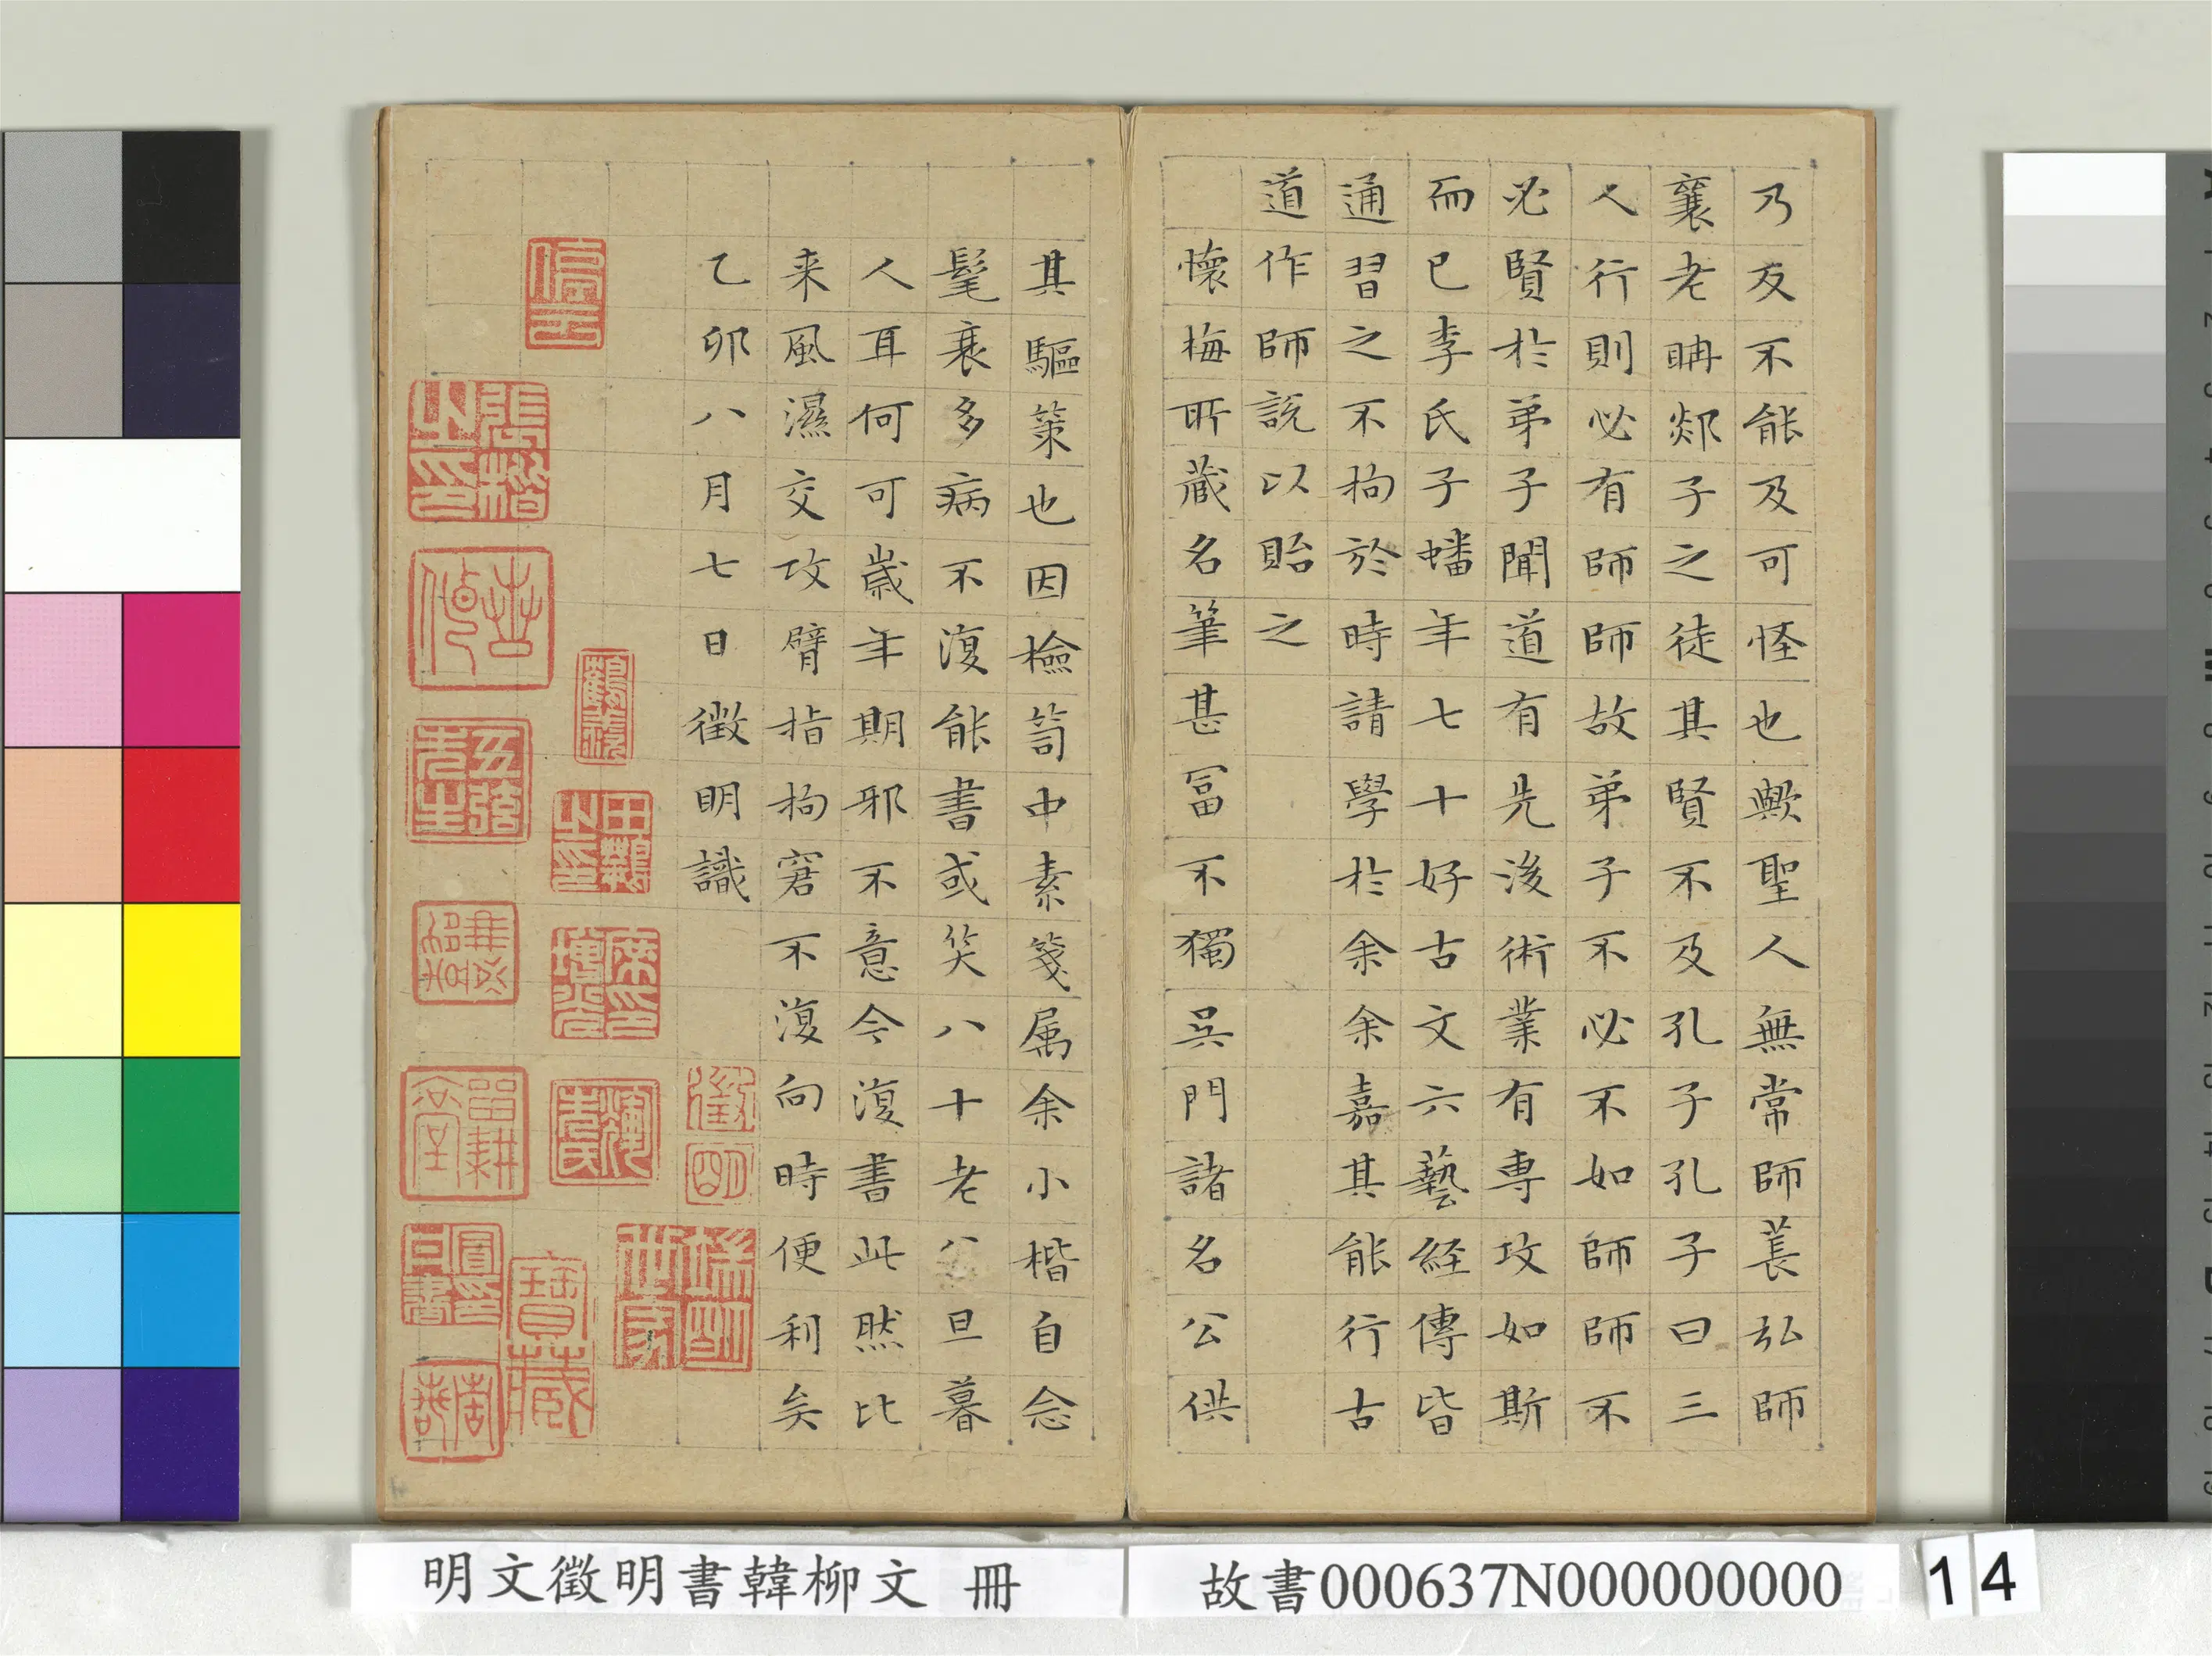 乃反不能及可怪也歟聖人無常師萇弘師
襄老聃郯子之徒其賢不及孔子孔子曰三
人行則必有師師故弟子不必不如師師不
必賢於弟子聞道有先後術業有専攻如斯
而已李氏子蟠年七十好古文六藝経傳皆
通習之不拘於時請學於余余嘉其能行古
道作師說以貽之
懷梅所藏名筆甚冨不獨吳門諸名公供
其驅策也因檢笥中素箋属余小楷自念
髦衰多病不復能書或笑八十老公旦暮
人耳何可歳年期邪不意今復書此然比
来風濕交攻臂指拘窘不復向時便利矣
乙卯八月七日徴明識
徵明
停雲
寶藏
明文徵明書韓柳文 冊
故書000637N000000000
14